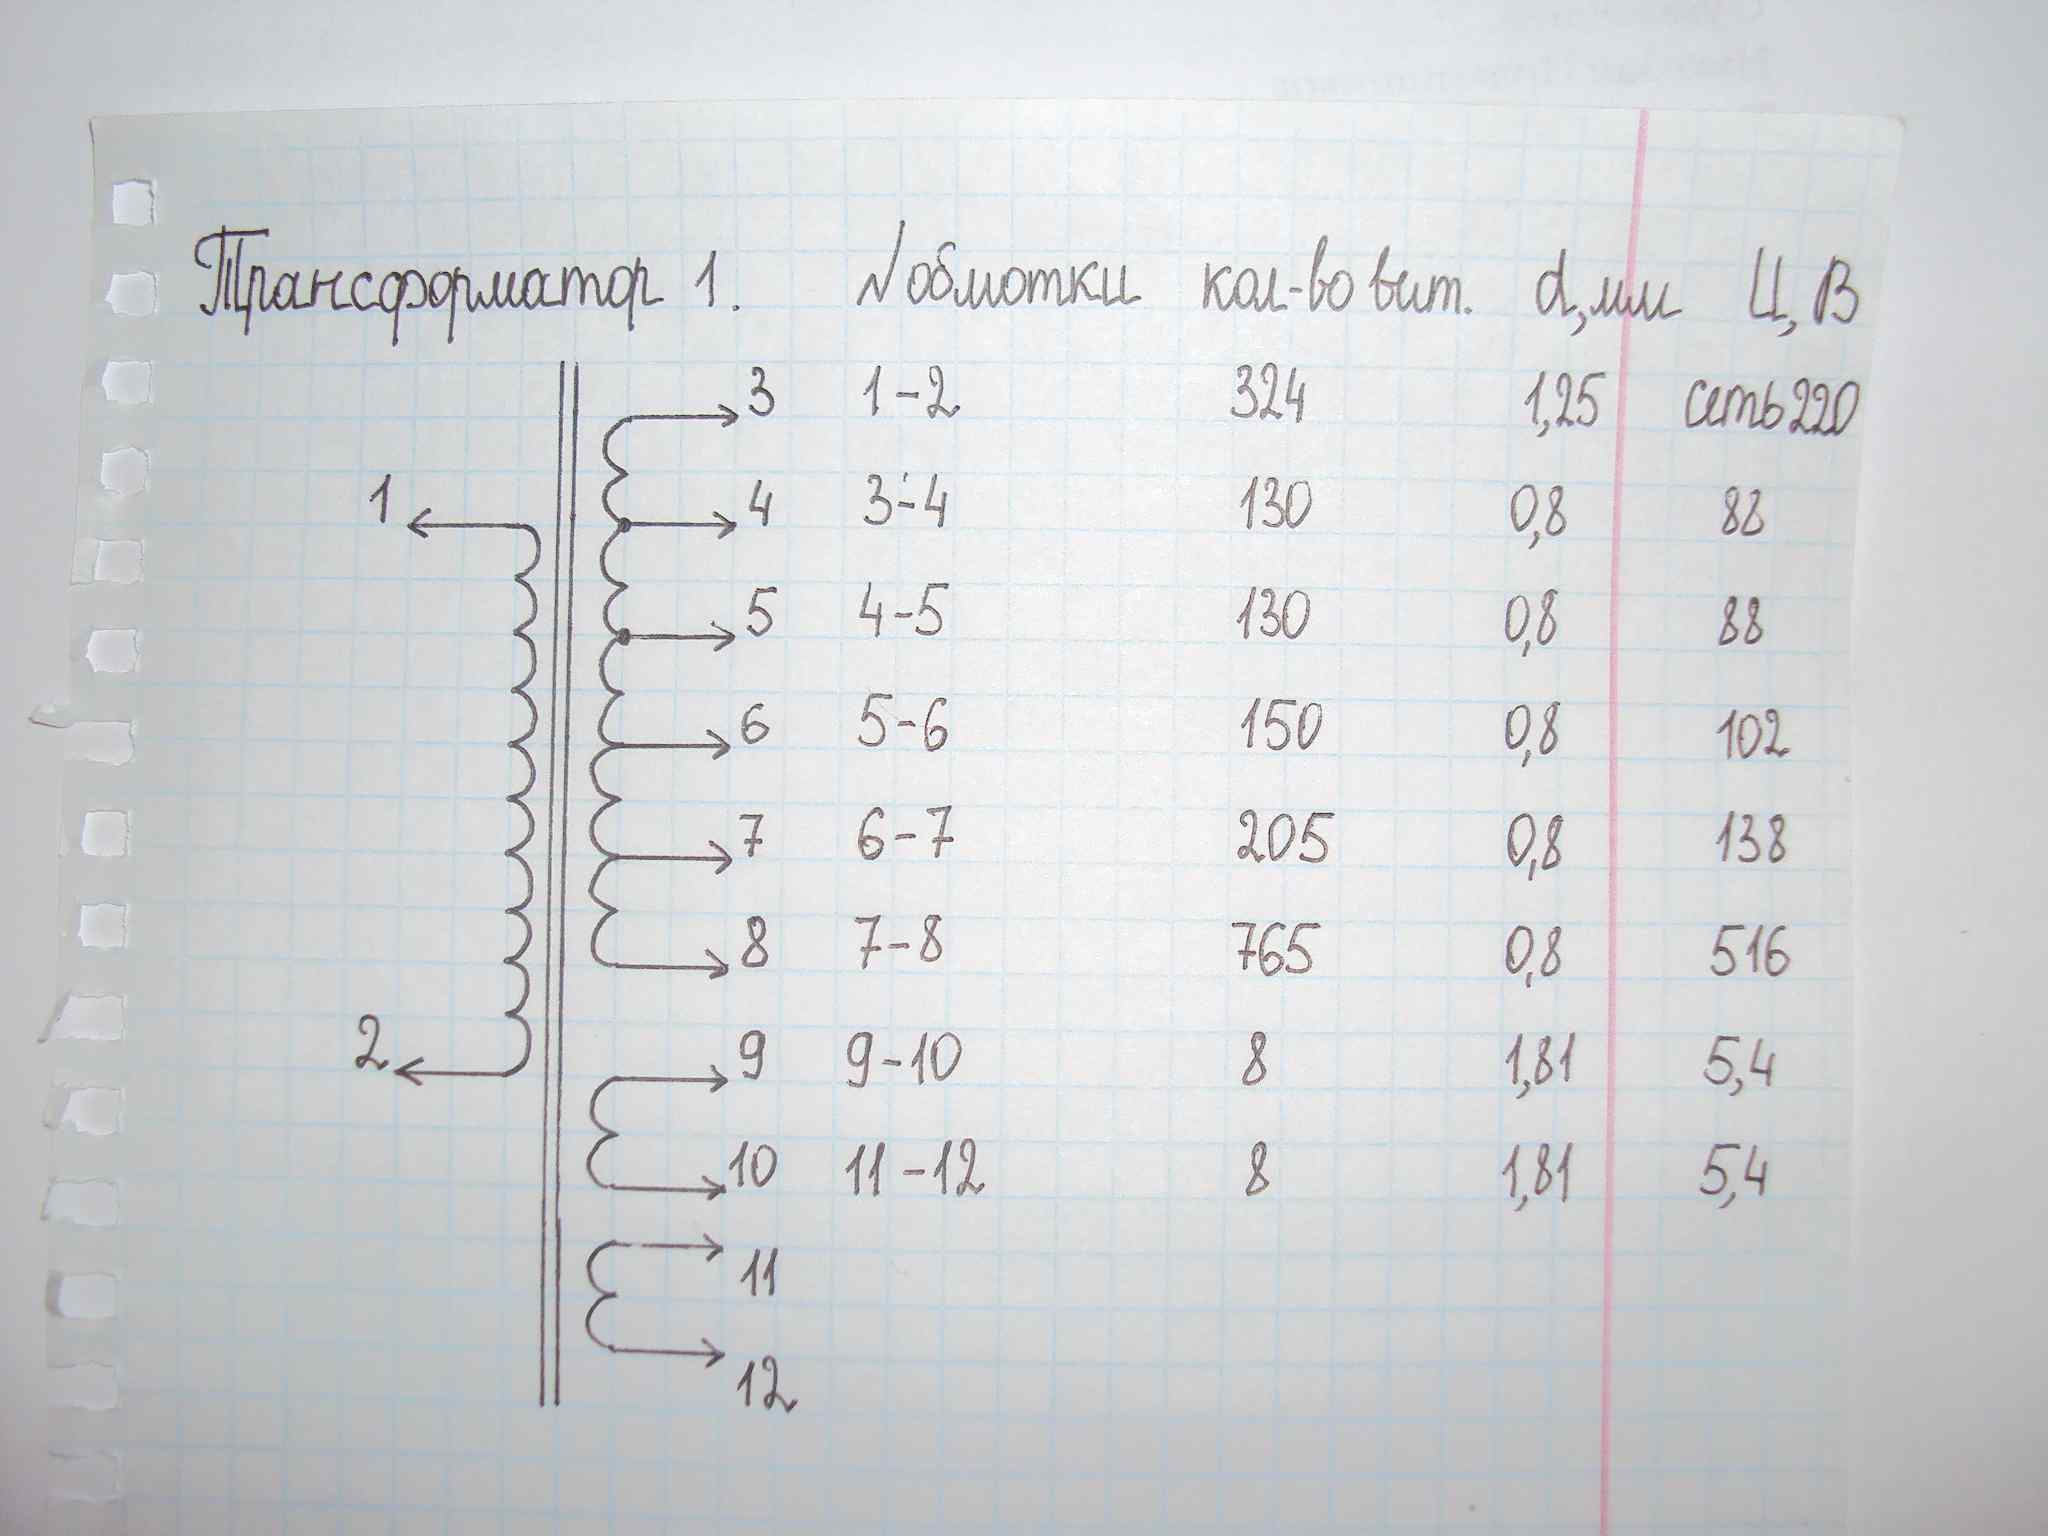 Трансформатор 1. № обмотки кол-во вит. d, мм U, В
3 1-2 324 1,25 сеть 220
1 4 3-4 130 0,8 88
5 4-5 130 0,8 88
6 5-6 150 0,8 102
7 6-7 205 0,8 138
8 7-8 765 0,8 516
2 9 9-10 8 1,81 5,4
10 11-12 8 1,81 5,4
11
12